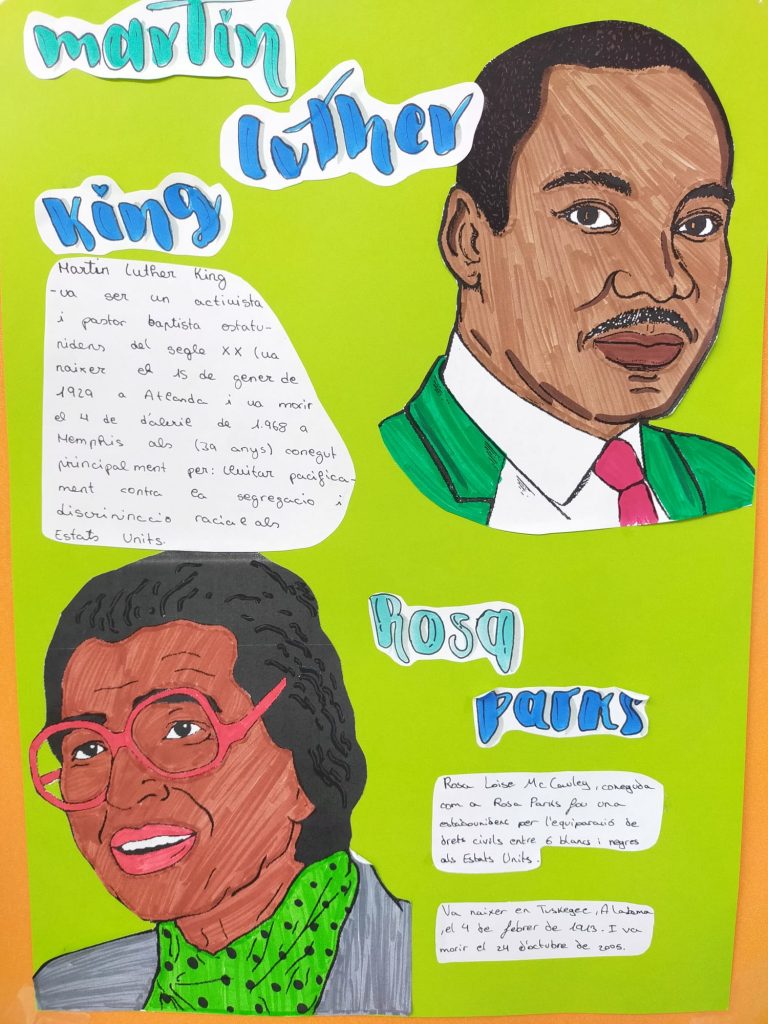 martin
luther
King
Martin Luther King
-va ser un activista
i pastor baptista estatu-
nidens del segle XX (va
naixer el 15 de gener de
1929 a Atlanda i va morir
el 4 de d'abril de 1.968 a
Memphis als (39 anys) conegut
principalment per: lluitar pacifica-
ment contra la segregacio i
discrininacio racial als
Estats Units.
Rosa
Parks
Rosa Loise Mc Cauley, coneguda
com a Rosa Parks fou una
estadounidenc per l'equiparació de
drets civils entre 6 blancs i negres
als Estats Units.
Va naixer en Tuskegee, Alabama
,el 4 de febrer de 1913. I va
morir el 24 d'octubre de 2005.